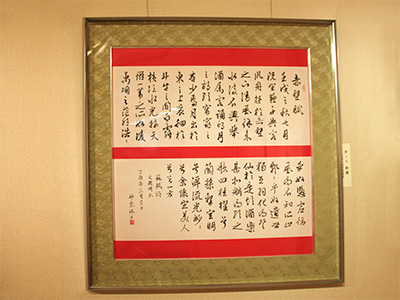 赤壁賦
壬戌之秋七月
既望蘇子与客
泛舟游於赤壁
之下清風徐来
水波不興舉
酒属客誦明月
之詩歌窈窕之
章少焉月出於
東山之上徘徊於
斗牛之間白露
横江水光接天
縱一葦之所如凌
萬頃之茫然浩浩
乎如馮虚御
風而不知其所止
飄飄乎如遺世
獨立羽化而登
仙於是飲酒樂
甚扣舷而歌之
歌曰桂櫂兮
蘭槳擊空明
兮泝流光渺渺
兮余懷望美人
兮天一方
蘇軾詩
丁酉年